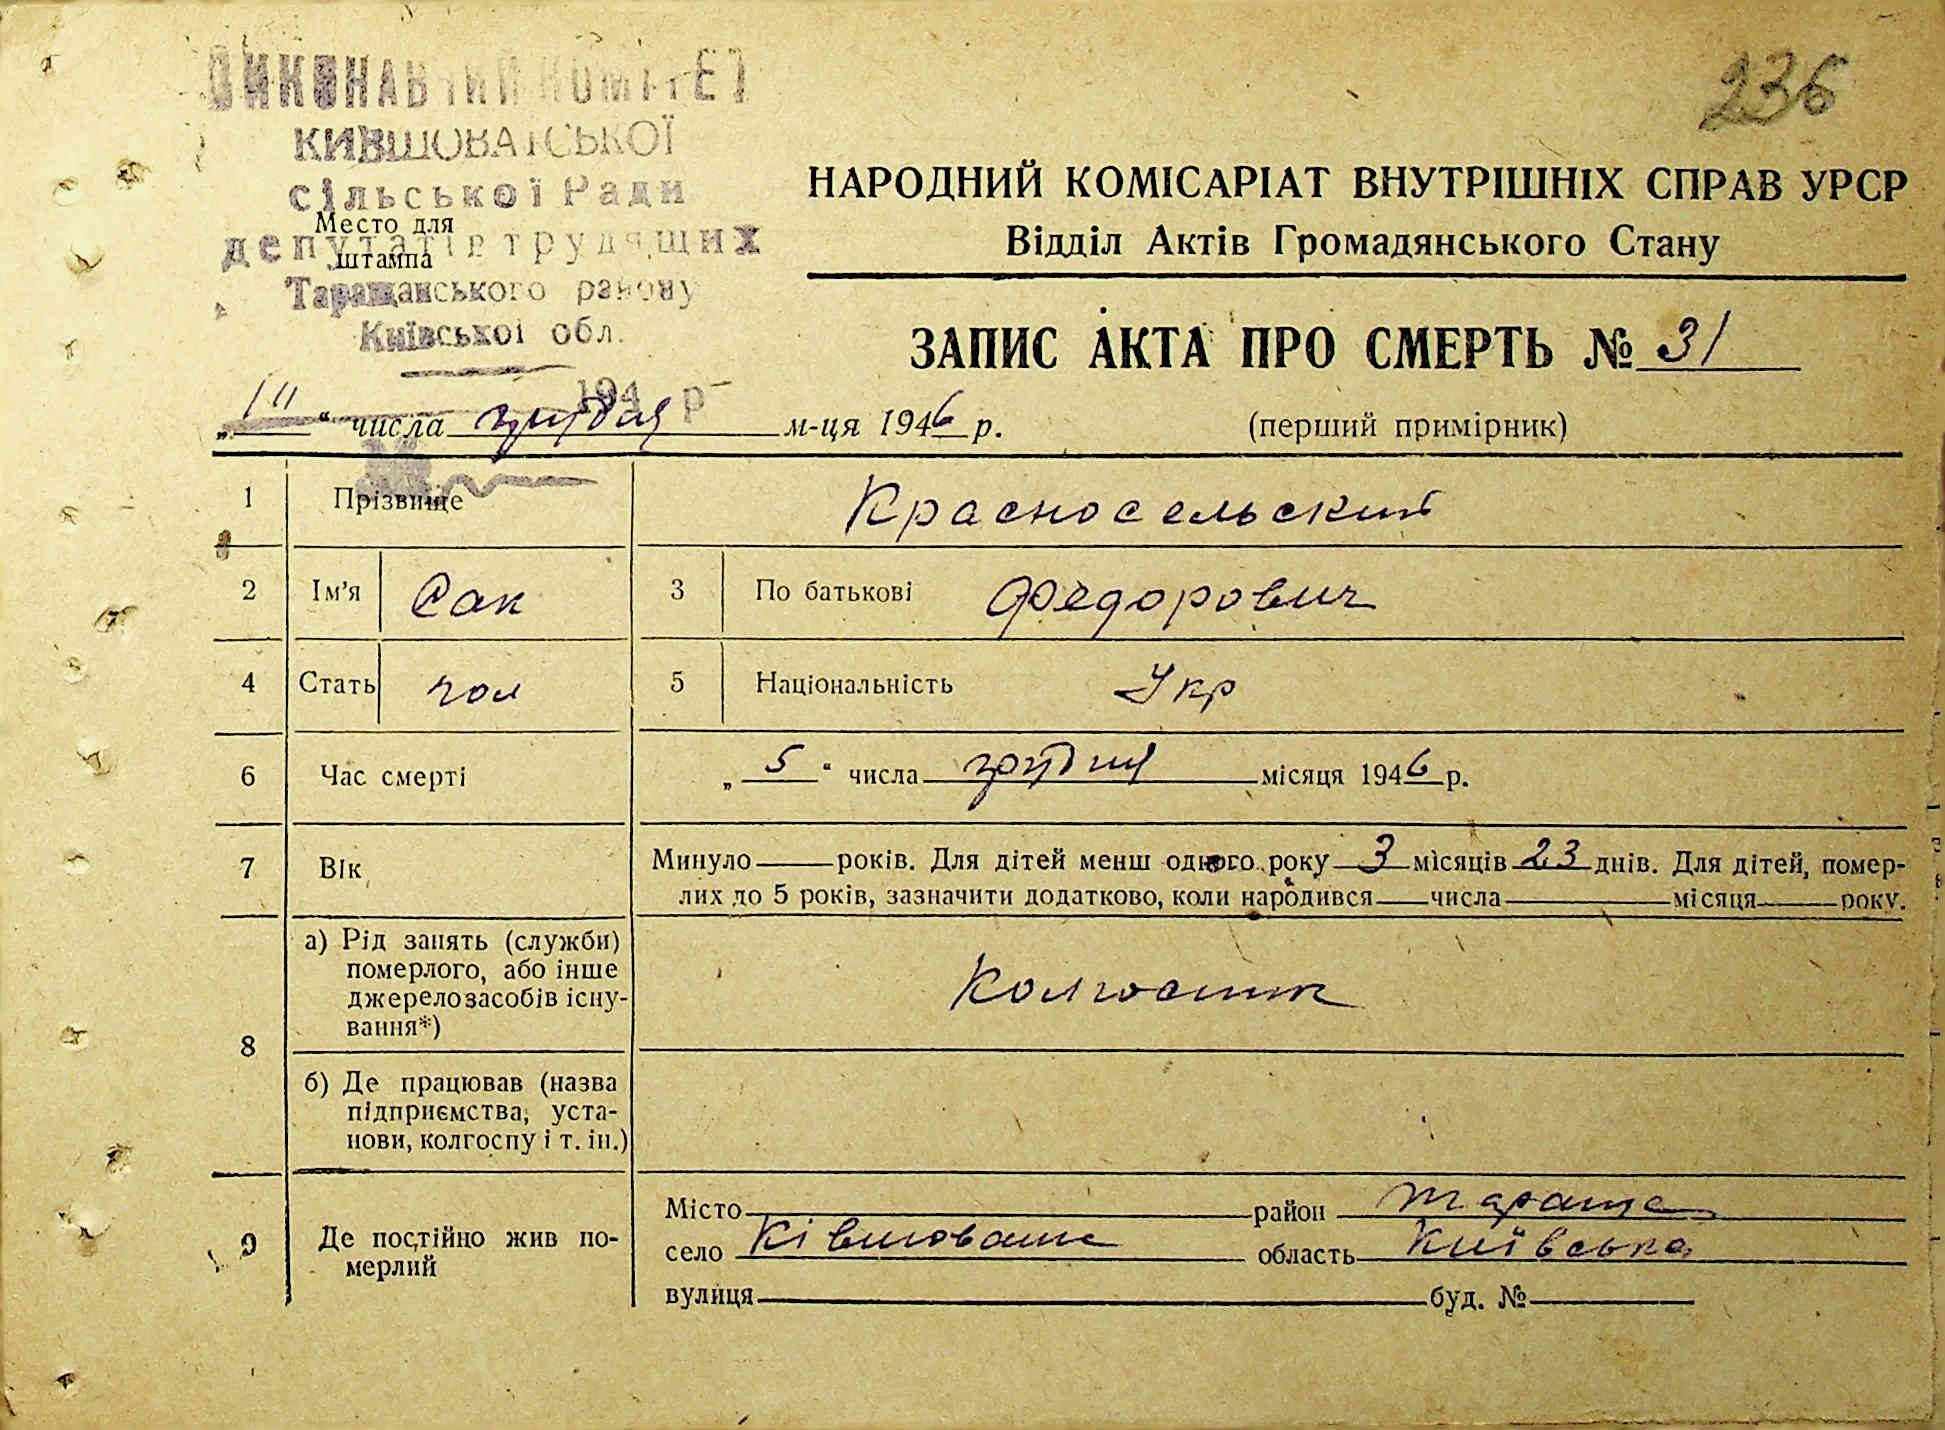 236
ВИКОНАВЧИЙ КОМІТЕТ
КИВШОВАТСЬКОЇ
сільської Ради
депутатів трудящих
Таращанського району
Київської обл.
194 р
Место для
штампа
НАРОДНИЙ КОМІСАРІАТ ВНУТРІШНІХ СПРАВ УРСР
Відділ Актів Громадянського Стану
ЗАПИС АКТА ПРО СМЕРТЬ № 31
„ “ числа грудня м-ця 1946 р.
(перший примірник)
1 Прізвище Красносельский
2 Ім'я Сак 3 По батькові Федорович
4 Стать чол 5 Національність Укр
6 Час смерті „ 5 “ числа грудня місяця 1946 р.
7 Вік Минуло років. Для дітей менш одного року 3 місяців 23 днів. Для дітей, помер-
лих до 5 років, зазначити додатково, коли народився числа місяця року.
8 а) Рід занять (служби)
померлого, або інше
джерело засобів існу-
вання*)
Колгосник
б) Де працював (назва
підприємства, уста-
нови, колгоспу і т. ін.)
9 Де постійно жив по-
мерлий
Місто район Тараща
село Ківшовате область Київська
вулиця буд. №